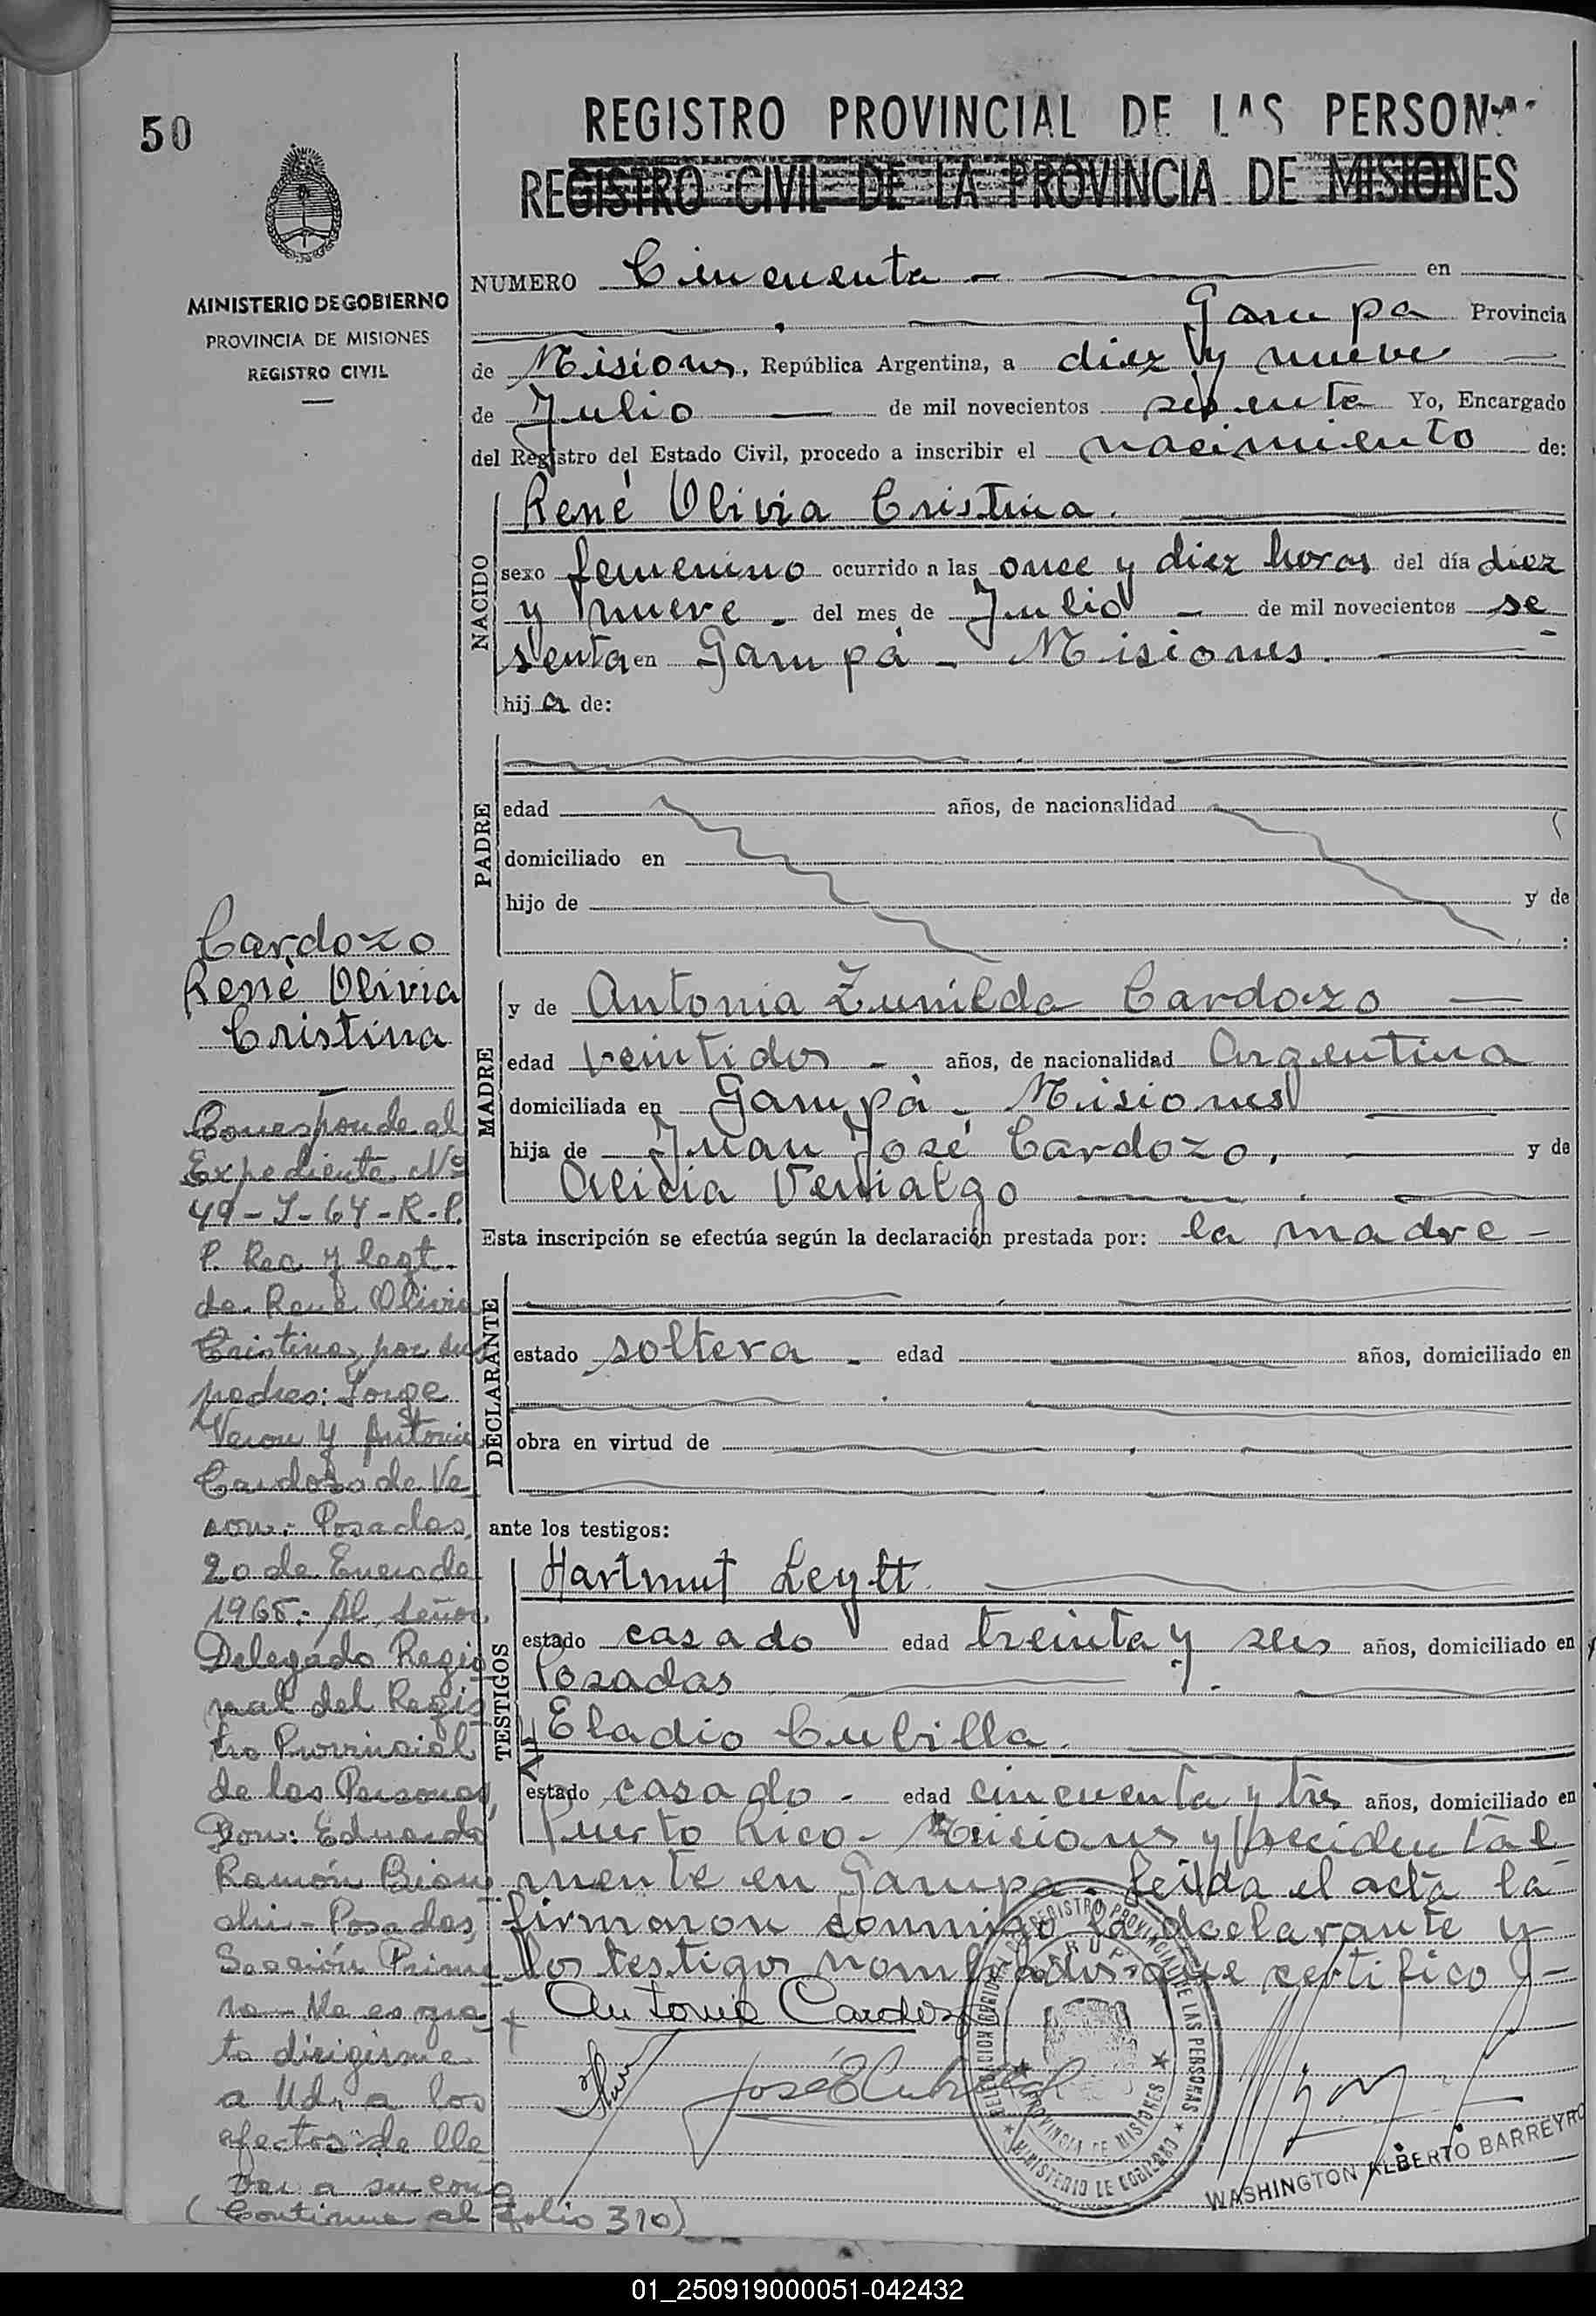 50
MINISTERIO DE GOBIERNO
PROVINCIA DE MISIONES
REGISTRO CIVIL
REGISTRO PROVINCIAL DE LAS PERSONAS
REGISTRO CIVIL DE LA PROVINCIA DE MISIONES
NUMERO Cincuenta - en
Garupa Provincia
de Misiones, República Argentina, a diez y nueve
de Julio de mil novecientos sesenta Yo, Encargado
del Registro del Estado Civil, procedo a inscribir el nacimiento de:
NACIDO
René Olivia Cristina.
sexo femenino ocurrido a las once y diez horas del día diez
y nueve - del mes de Julio - de mil novecientos se
senta en Garupá - Misiones.
hija de:
PADRE
edad años, de nacionalidad
domiciliado en
hijo de y de
:
MADRE
y de Antonia Zunilda Cardozo
edad veintidos - años, de nacionalidad Argentina
domiciliada en Garupá - Misiones
hija de Juan José Cardozo, y de
Alicia Vernialgo
Esta inscripción se efectúa según la declaración prestada por: la madre -
DECLARANTE
estado soltera - edad años, domiciliado en
obra en virtud de
ante los testigos:
TESTIGOS
Hartmut Leytt
estado casado edad treinta y seis años, domiciliado en
Posadas y
Eladio Cubilla.
estado casado - edad cincuenta y tres años, domiciliado en
Puerto Rico - Misiones y accidental
mente en Garupa. Leida el acta la
firmaron conmigo la declarante y
los testigos nombrados que certifico -
Antonia Cardozo
José E Cubilla
REGISTRO PROVINCIAL DE LAS PERSONAS
GARUPA
PROVINCIA DE MISIONES
MINISTERIO DE GOBIERNO
WASHINGTON ALBERTO BARREYRO
Cardozo
René Olivia
Cristina
Corresponde al
Expediente Nº
49-J-64-R.P.
P. Rec y legt.
de René Olivia
Cristina, por sus
padres: Jorge
Veron y Antonia
Cardozo de Ve
ron.- Posadas,
20 de Enero de
1965.- Al señor
Delegado Regio
nal del Regis
tro Provincial
de las Personas,
Don: Eduardo
Ramón Bian
chi - Posadas,
Sección Prime
ra - Me es gra
to dirigirme
a Ud. a los
efectos de lle
var a su cono
(Continua al folio 310)
01_250919000051-042432